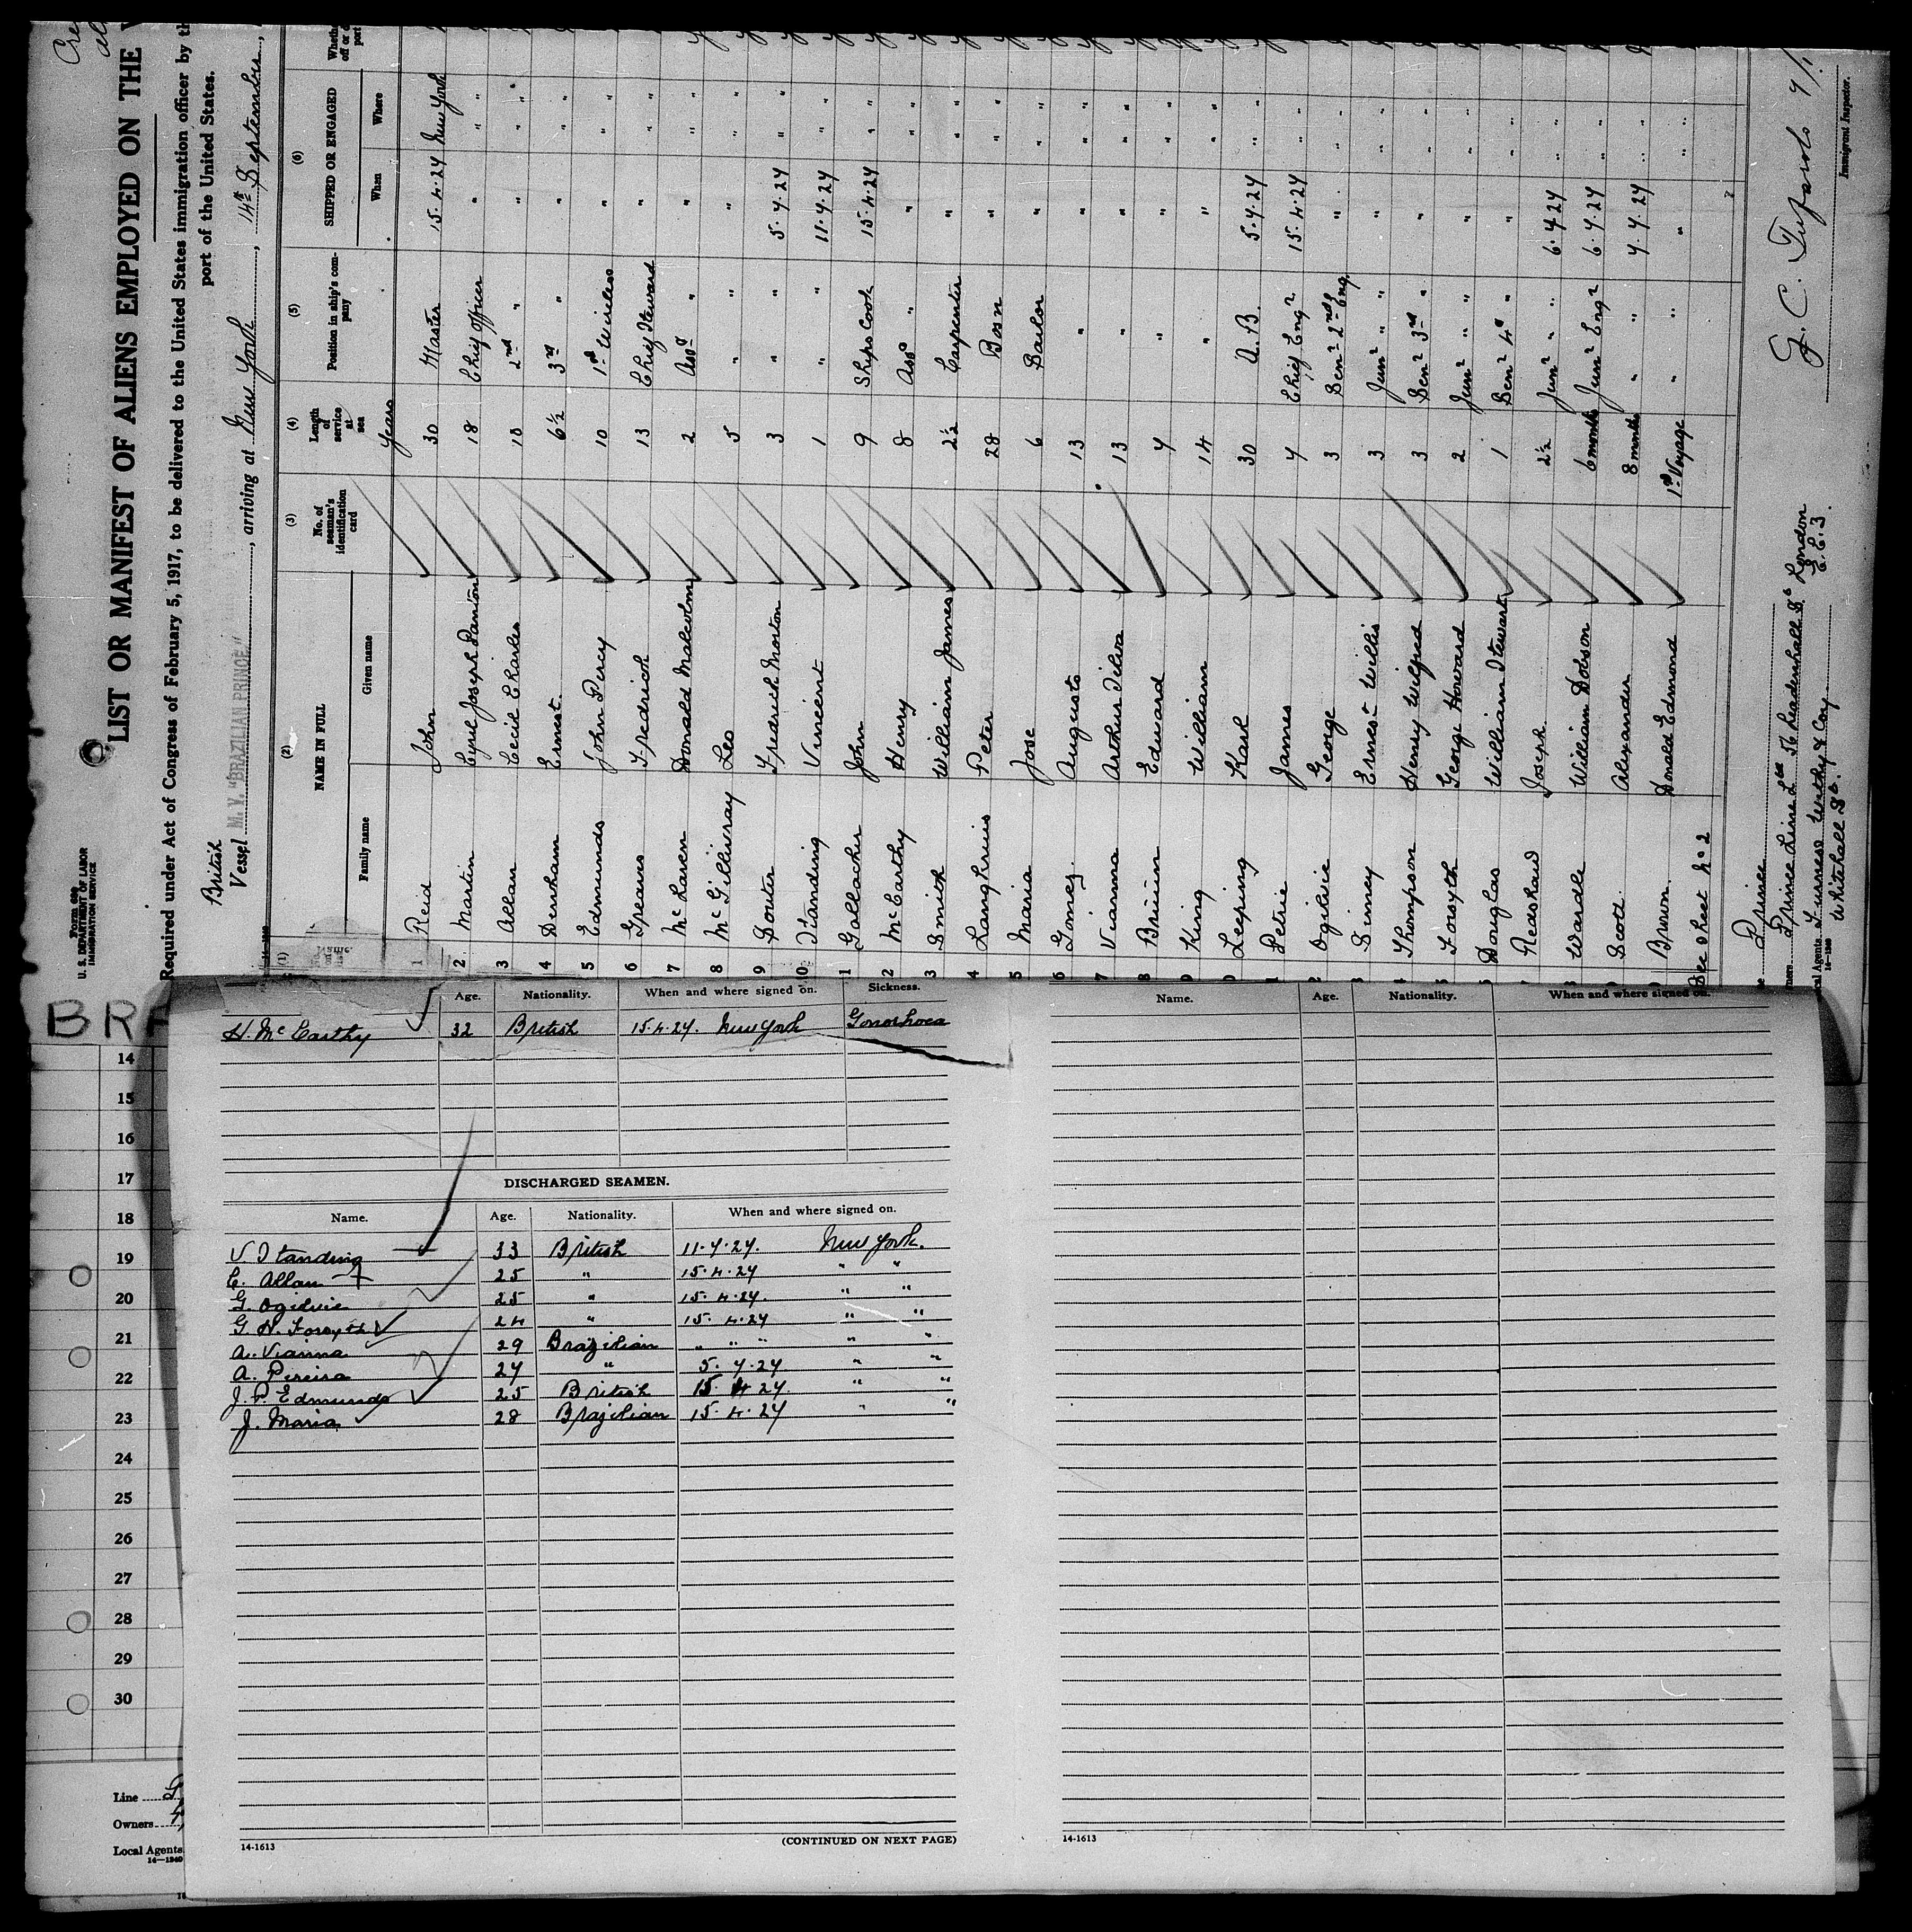 Form 680
U. S. DEPARTMENT OF LABOR
IMMIGRATION SERVICE
LIST OR MANIFEST OF ALIENS EMPLOYED ON THE
Required under Act of Congress of February 5, 1917, to be delivered to the United States immigration officer by th
port of the United States.
British
Vessel M. V. "BRAZILIAN PRINCE", arriving at New York, 14th September,
(1) (2) (3) (4) (5) (6)
NAME IN FULL
Family name Given name
No. of seaman's identification card
Length of service at sea
Position in ship's company
SHIPPED OR ENGAGED
When Where
Years
1 Reid John 30 Master 15.4.27 New York
2 Martin Cyril Joseph Panton 18 Chief Officer " " "
3 Allan Cecil Charles 10 2nd " " " "
4 Denham Ernest 6½ 3rd " " " "
5 Edmunds John Percy 10 1st Wireless " " "
6 Greaves Fredrick 13 Chief Steward " " "
7 McLaren Donald Malcolm 2 Asst " " " "
8 McGilliuray Leo 5 " " " " "
9 Souter Fredrick Morton 3 " " 5.7.27 " "
10 Standing Vincent 1 " " 11.7.27 " "
1 Gallacher John 9 Ships Cook 15.4.27 " "
2 McCarthy Henry 8 Asst " " " "
3 Smith William James 2½ Carpenter " " "
4 Langhrius Peter 28 Bosn " " "
5 Maria Jose 6 Sailor " " "
6 Gomez Augusto 13 " " " "
7 Vianna Arthur Silva 13 " " " "
8 Brüün Edward 7 " " " "
9 King William 14 " " " "
0 Leping Karl 30 A.B. 5.7.27 " "
1 Petrie James 7 Chief Engr 15.4.27 " "
2 Ogilvie George 3 Senr 2nd Eng " " "
3 Sinney Ernest Willis 3 Junr " " " " "
4 Thompson Henry Wilfred 3 Senr 3rd " " " "
5 Forsyth George Howard 2 Junr " " " " "
6 Douglas William Stewart 1 Senr 4th " " " "
7 Redshaw Joseph 2½ Junr " " 6.7.27 " "
8 Wardle William Dobson 6 months Junr Engr 6.7.27 " "
Scott Alexander 8 months " " 7.7.27 " "
Brown Donald Edmond 1st Voyage " " " " "
See Sheet No 2
Prince
Prince Line Ltd 56 Leadenhall St London E.C.3.
cal Agents Furness Withy & Coy
14—1240 Whitehall St.
Immigrant Inspector.
BRA
Age. Nationality. When and where signed on. Sickness.
H. McCarthy 32 British 15.4.27. New York Gonorhoea
DISCHARGED SEAMEN.
Name. Age. Nationality. When and where signed on.
V Standing 33 British 11.7.27. New York.
C. Allan 25 " 15.4.27 " "
G. Ogilvie 25 " 15.4.27. " "
G. H. Forsyth 24 " 15.4.27 " "
A. Vianna 29 Brazilian " " " " "
A. Pereira 27 " 5.7.27 " "
J. P. Edmunds 25 British 15.4.27. " "
J. Maria 28 Brazilian 15.4.27 " "
14-1613
(CONTINUED ON NEXT PAGE)
Name. Age. Nationality. When and where signed on.
14-1613
14
15
16
17
18
19
20
21
22
23
24
25
26
27
28
29
30
Line
Owners
Local Agents
14—1240